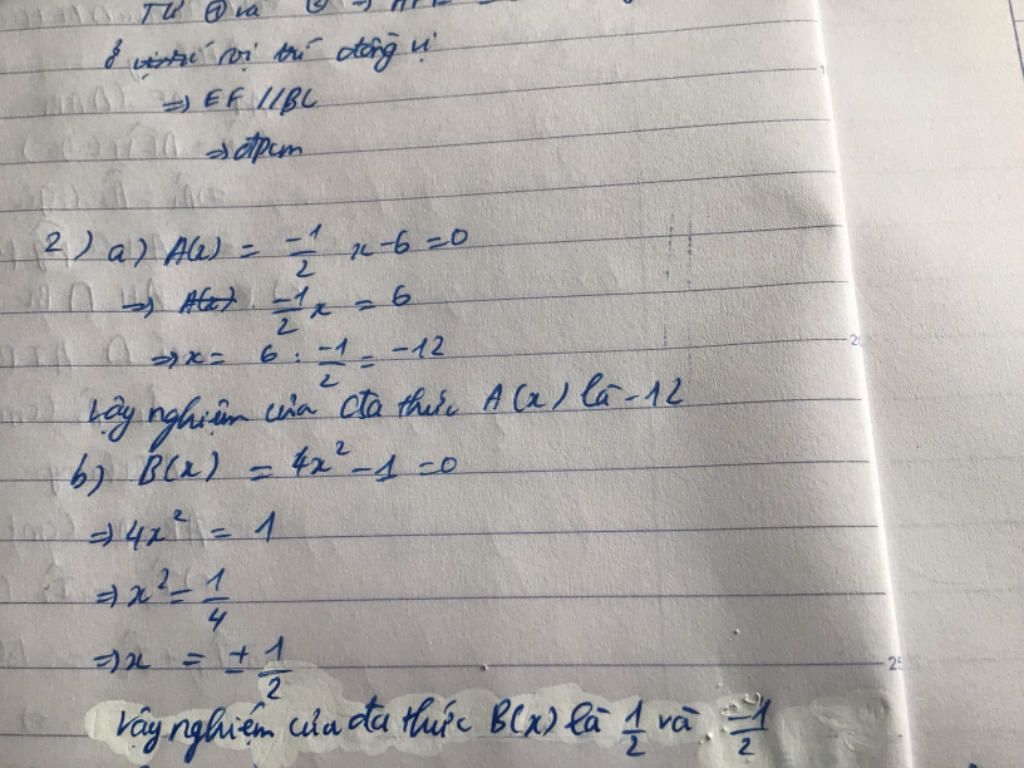 Từ ① và ② ⇒
ở vị trí đồng vị
⇒ EF // BC
⇒ đpcm
2) a) A(x) = -1/2 x - 6 = 0
⇒ A(x) -1/2 x = 6
⇒ x = 6 : -1/2 = -12
Vậy nghiệm của đa thức A(x) là -12
b) B(x) = 4x² - 1 = 0
⇒ 4x² = 1
⇒ x² = 1/4
⇒ x = ± 1/2
Vậy nghiệm của đa thức B(x) là 1/2 và -1/2
20
25